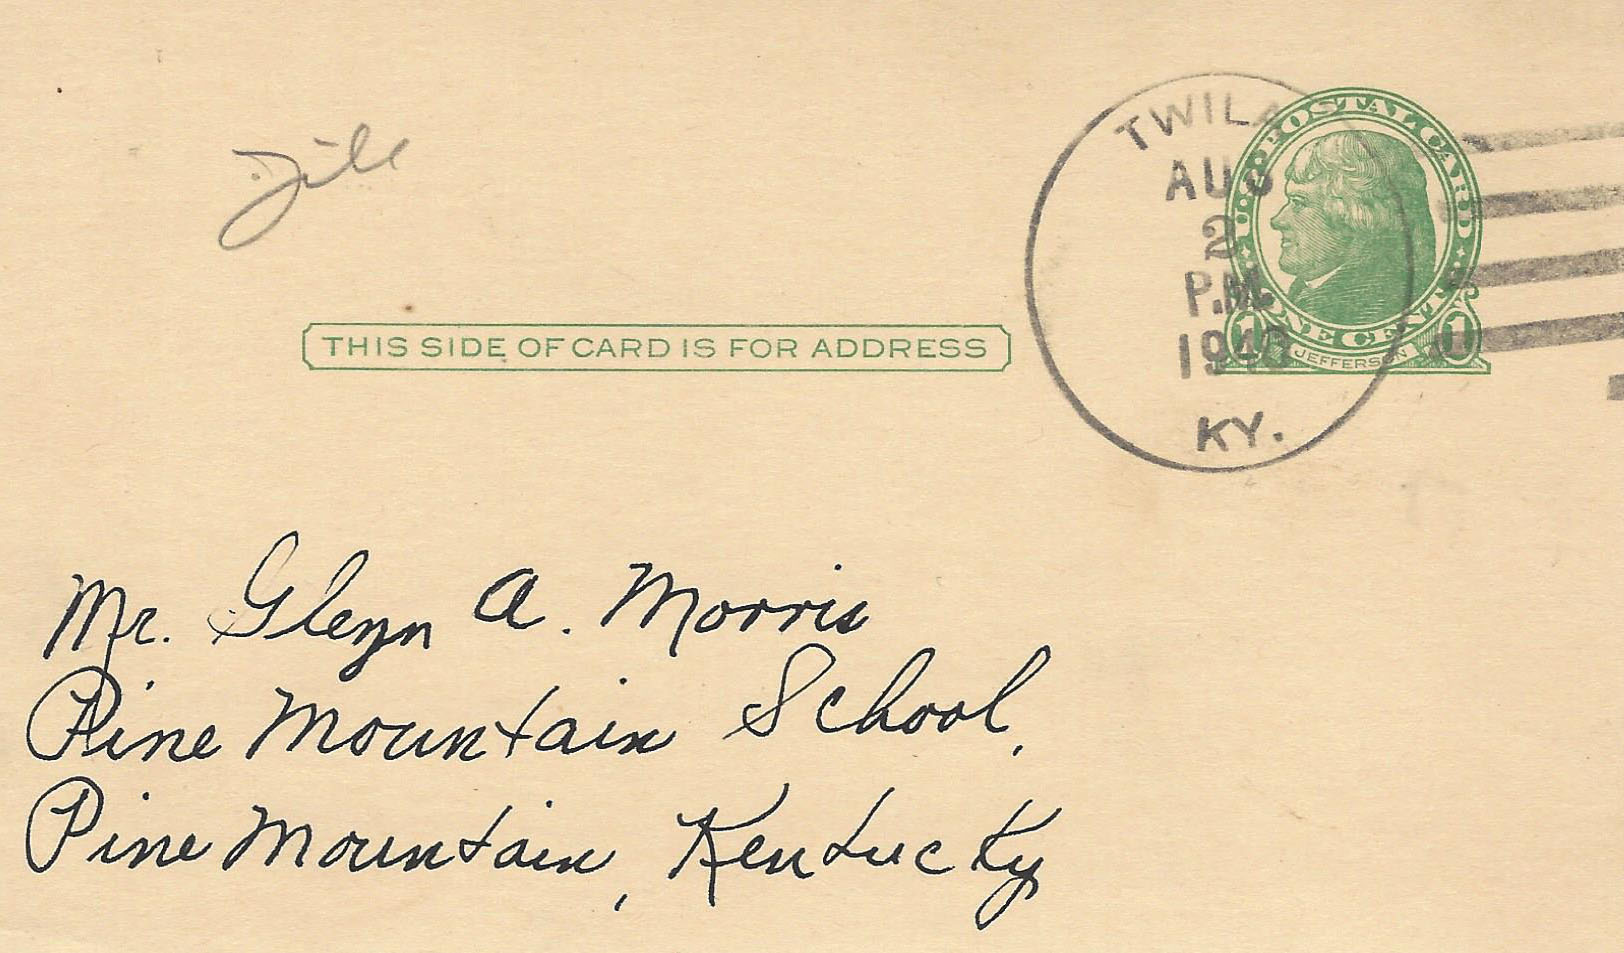 File
TWILA
AUG
2
P.M.
1940
KY.
U.S. POSTAL CARD
1 ONE CENT 1
JEFFERSON
THIS SIDE OF CARD IS FOR ADDRESS
Mr. Glenn A. Morris
Pine Mountain School,
Pine Mountain, Kentucky